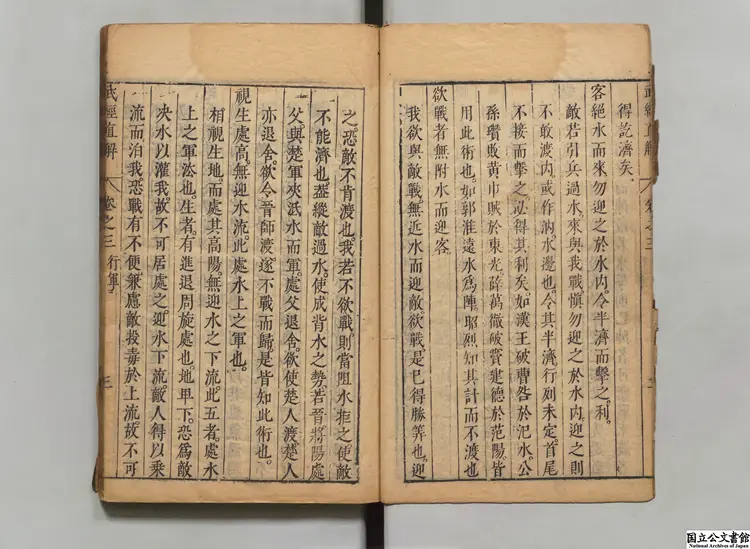 武經直解 卷之三
得訖濟矣
客絕水而來勿迎之於水內令半濟而擊之利。
敵若引兵過水來與我戰愼勿迎之於水內迎之則
不敢渡內或作汭水邊也令其半濟行列未定首尾
不接而擊之必得其利矣如漢王破曹咎於汜水公
孫瓚敗黃巾賊於東光薛萬徹破竇建德於范陽皆
用此術也如郭淮遠水爲陣昭烈知其計而不渡也
欲戰者無附水而迎客
我欲與敵戰無近水而迎敵欲戰是已得勝筭也迎
之恐敵不肯渡也我若不欲戰則當阻水拒之使敵
不能濟也盖縱敵過水使成背水之勢若晉將陽處
父與楚軍夾泜水而軍處父退舍欲使楚人渡楚人
亦退舍欲令晉師渡遂不戰而歸是皆知此術也
視生處高無迎水流此處水上之軍也
相視生地而處其高陽無迎水之下流此五者處水
上之軍法也生者有進退周旋處也地卑下恐爲敵
決水以灌我故不可居處之迎水下流敵人得以乘
流而泊我恐戰有不便兼慮敵投毒於上流故不可
武經直解 卷之三 行軍 三
国立公文書館
National Archives of Japan